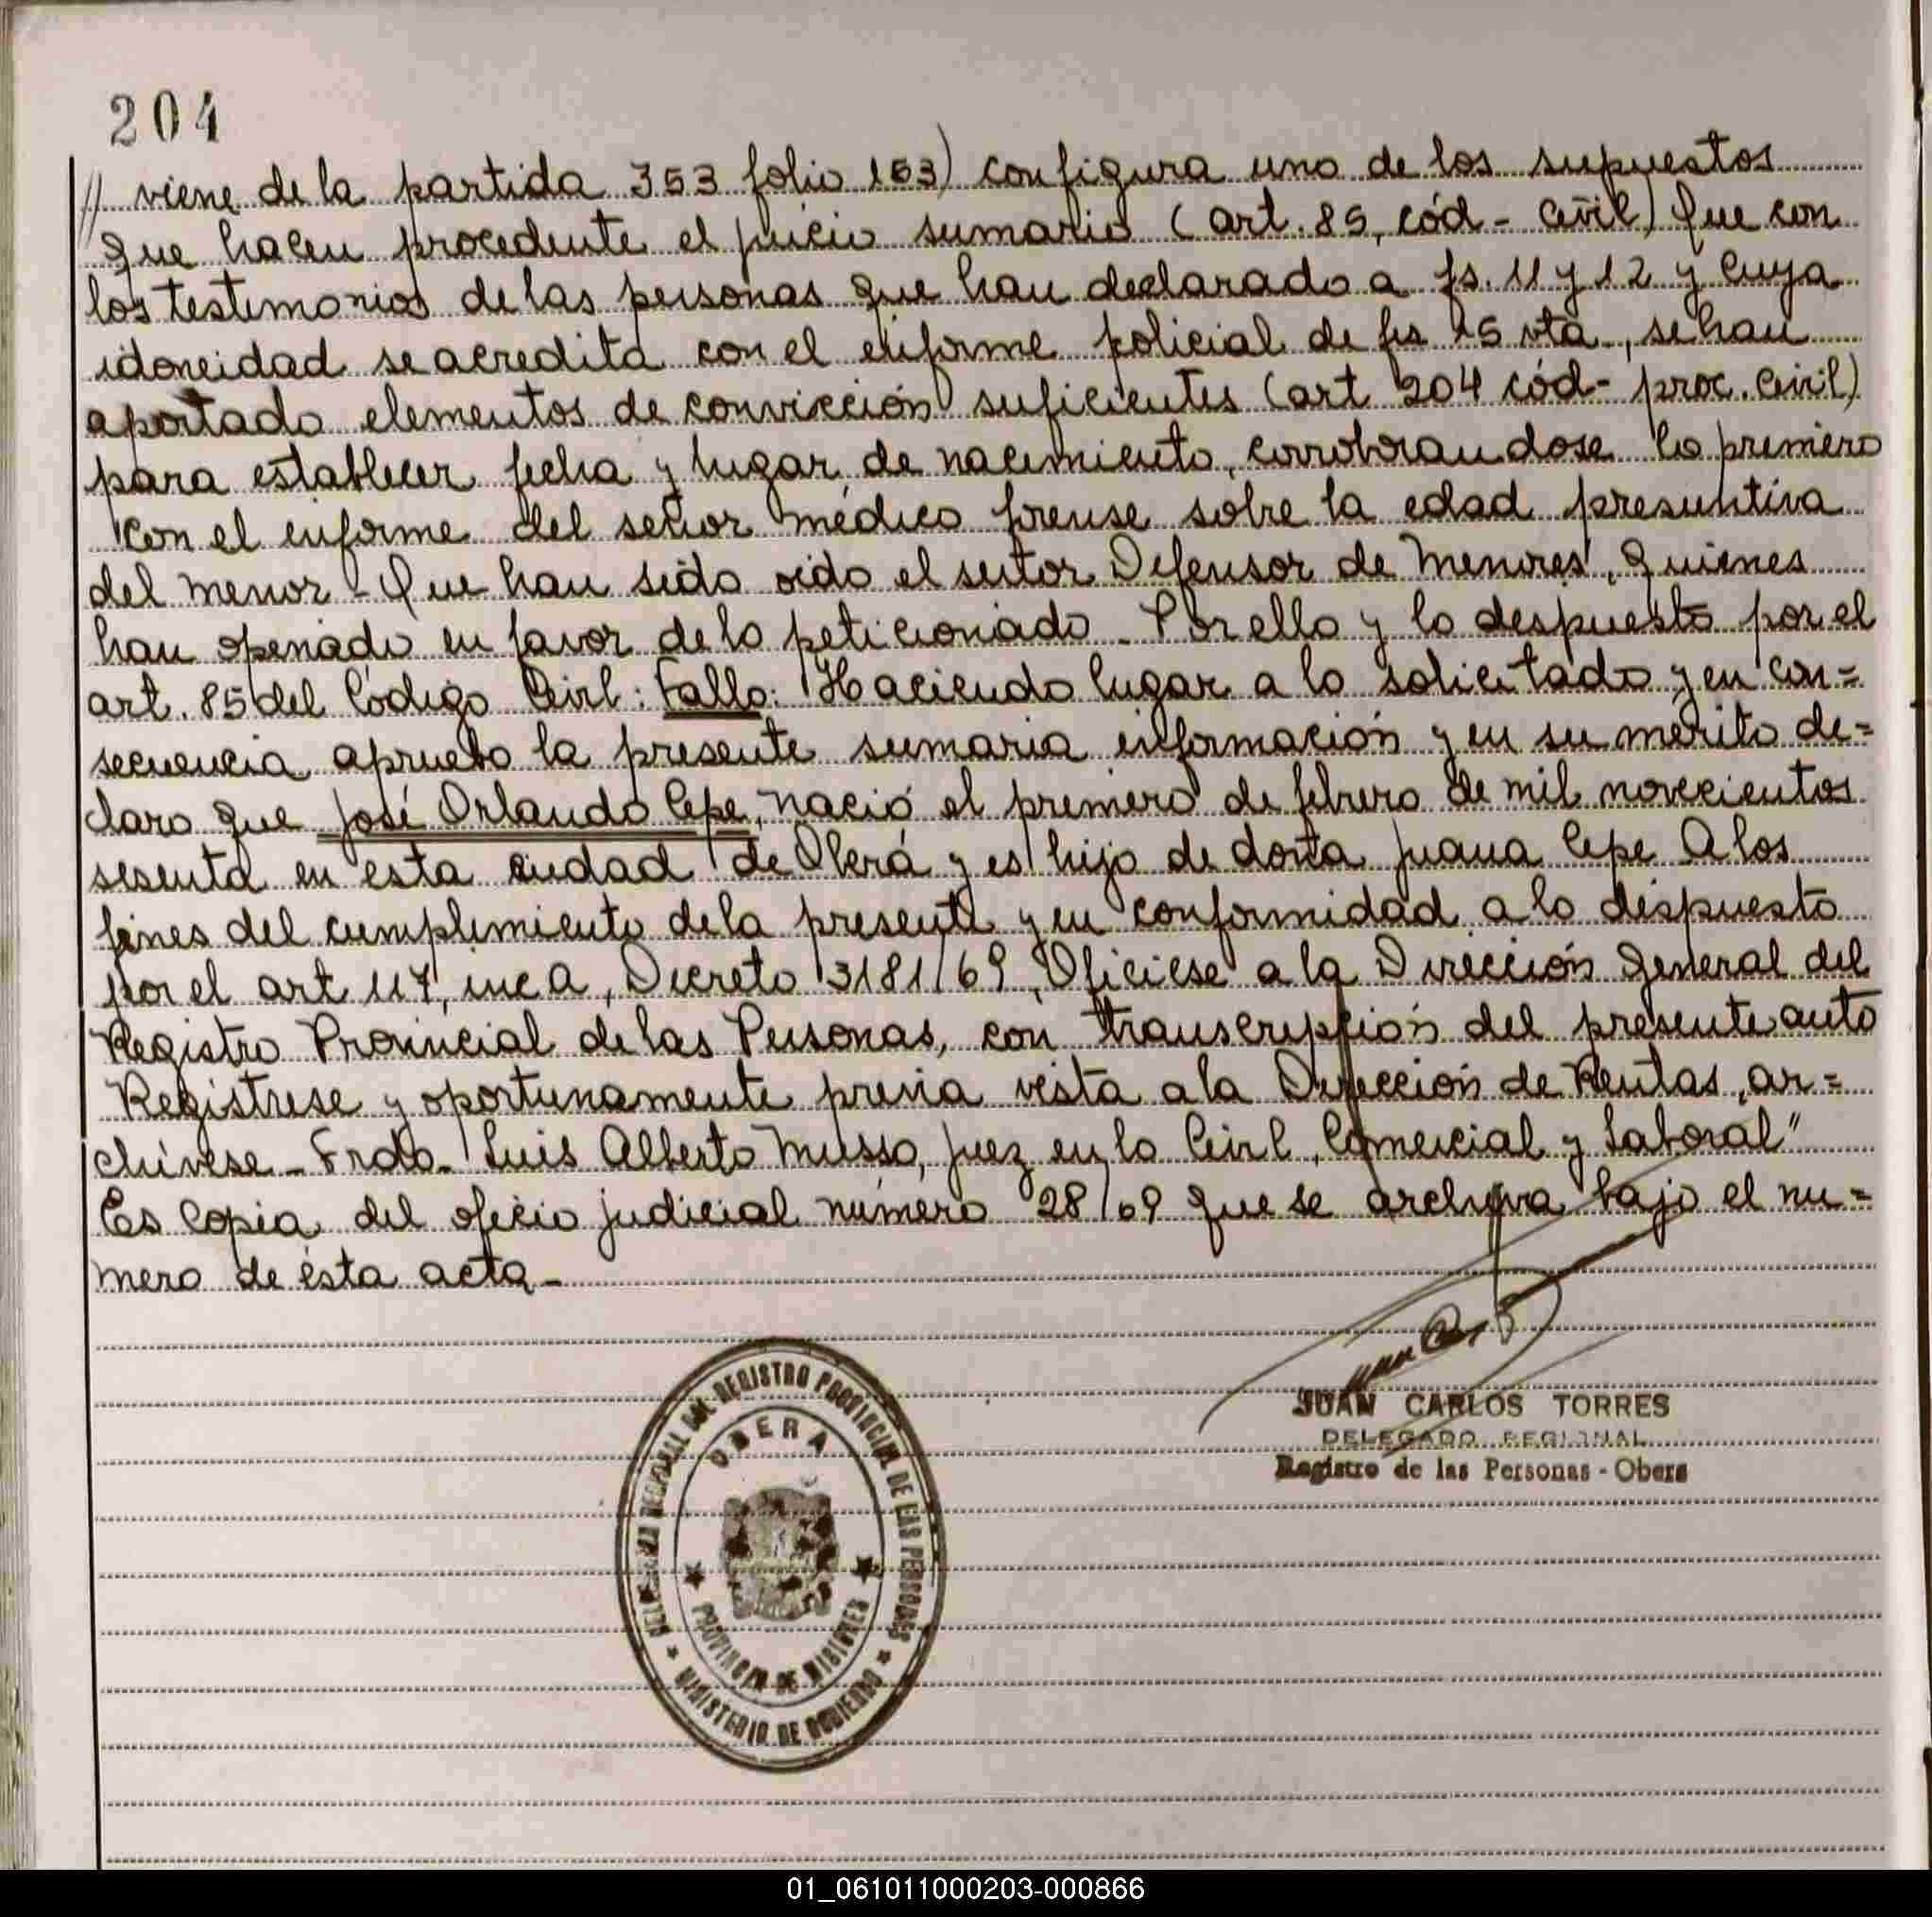 204
// viene de la partida 353 folio 153) configura uno de los supuestos
que hacen procedente el juicio sumario (art. 85, cód - Civil) Que con
los testimonios de las personas que han declarado a fs. 11 y 12 y cuya
idoneidad se acredita con el informe policial de fs 15 vta., se han
aportado elementos de convicción suficientes (art 204 cód - proc. Civil)
para establecer fecha y lugar de nacimiento, corroborandose lo primero
con el informe del señor médico forense sobre la edad presuntiva
del menor - Que han sido oido el señor Defensor de Menores, quienes
han openado en favor de lo peticionado - Por ello y lo despuesto por el
art. 85 del Código Civil: Fallo: Haciendo lugar a lo solicitado y en con=
secuencia apruebo la presente sumaria información y en su mérito de=
claro que José Orlando Cepe, nació el primero de febrero de mil novecientos
sesenta en esta ciudad de Oberá y es hijo de doña Juana Cepe A los
fines del cumplimiento de la presente y en conformidad a lo dispuesto
por el art 117, inc A, Decreto 3181/69, Oficiese a la Dirección General del
Registro Provincial de las Personas, con transcripción del presente auto
Registrese y oportunamente previa vista a la Dirección de Rentas, ar=
chívese - Frdo - Luis Alberto Musso, Juez en lo Civil, Comercial y Laboral"
Es Copia del oficio judicial número 28/69 que se archiva bajo el nu=
mero de ésta acta -
JUAN CARLOS TORRES
DELEGADO REGIONAL
Registro de las Personas - Obera
REGISTRO PROVINCIAL DE LAS PERSONAS
OBERA
PROVINCIA DE MISIONES
MINISTERIO DE GOBIERNO
01_061011000203-000866